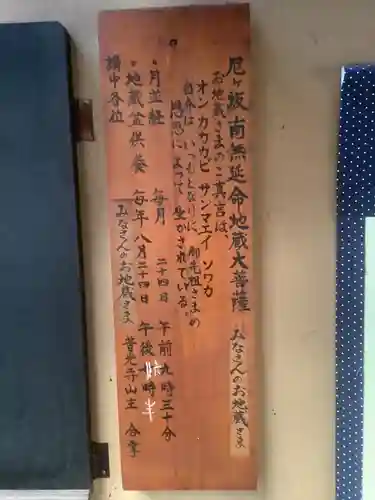 尼ヶ坂 南無延命地蔵大菩薩 みなさんのお地蔵さま
お地蔵さまのご真言は、
オン カカカビ サンマエイ ソワカ
自分は いつもとなりに、御先祖さまの
恩恵によって 生かされている。
月並経 毎月 二十四日 午前九時三十分
地蔵盆供養 毎年八月二十四日 午後 時半
講中各位 みなさんのお地蔵さま 普光寺山主 合掌